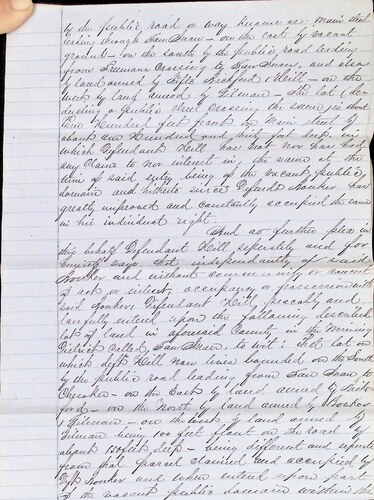 by the public road or way known as Main Street
leading through San Juan – on the East by vacant
ground – on the South by the public road leading
from Freemans Crossing to San Juan, and also
land owned by Hill – on the
West by land owned by Gilman – the lot
a public street crossing the same is about
Hundred feet front on Main Street by
about one Hundred and fifty feet deep. in
which Defendant Hill has not nor has had
any Claim to nor interest in, the same at the
time of said entry being of the vacant public
domain and hitherto since Defendt has
greatly improved and constantly occupied the same
in his individual right.
And so further plea in
this behalf Defendant Hill seperately and for
himself says that independantly of said
and without community or concert
of act or intent, occupancy or possession with
said Defendant Hill peacably and
lawfully entered upon the following described
lot of land in aforesaid County, in the Mining
District Called, San Juan, to wit: that lot on
which deft Hill now lives bounded on the South
by the public road leading from San Juan to
Cherokee – on the East by land owned by
ford – on the North by land owned by
& Gilman – on the West by land owned by
Gilman being 100 feet front on the road by
about 150 feet deep – being different and seperate
from that parcel claimed and occupied by
Deft and when entered upon part
of the vacant public domain